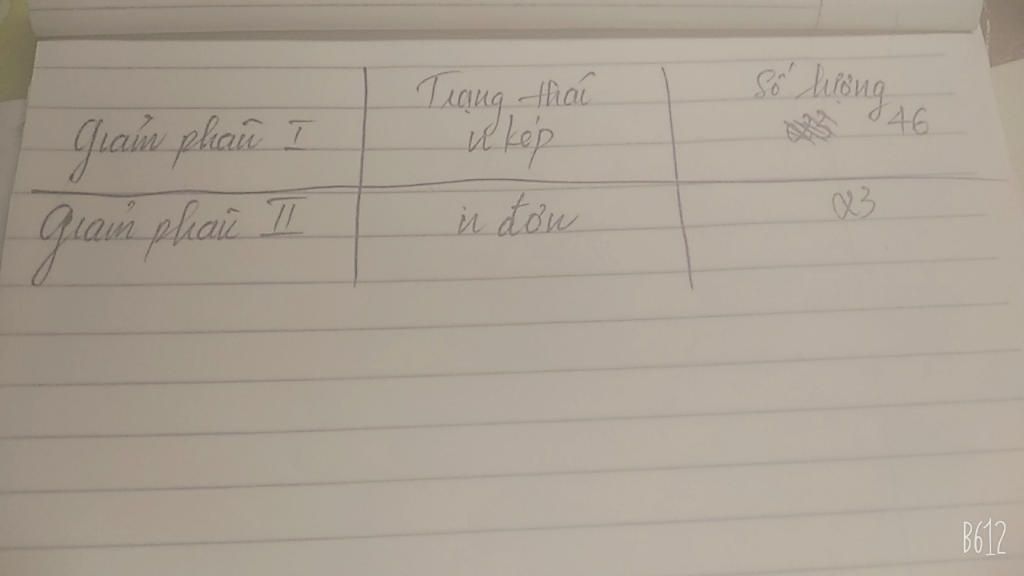 Trạng thái Số lượng
Giảm phân I n kép 46
Giảm phân II n đơn 23
B612